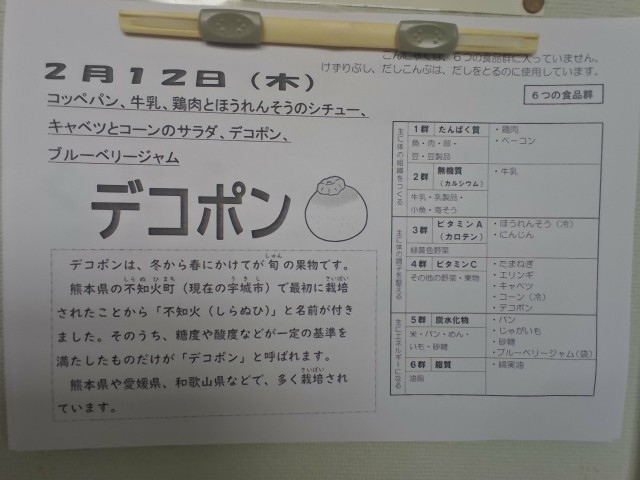 こんにゃくは、6つの食品群に入っていません。
けずりぶし、だしこんぶは、だしをとるのに使用しています。
2月12日(木)
コッペパン、牛乳、鶏肉とほうれんそうのシチュー、
キャベツとコーンのサラダ、デコポン、
ブルーベリージャム
デコポン
デコポンは、冬から春にかけてが旬の果物です。
熊本県の不知火町(現在の宇城市)で最初に栽培
されたことから「不知火(しらぬひ)」と名前が付き
ました。そのうち、糖度や酸度などが一定の基準を
満たしたものだけが「デコポン」と呼ばれます。
熊本県や愛媛県、和歌山県などで、多く栽培され
ています。
6つの食品群
主に体の組織をつくる
1群 たんぱく質
魚・肉・卵・
豆・豆製品
・鶏肉
・ベーコン
2群 無機質
(カルシウム)
牛乳・乳製品・
小魚・海そう
・牛乳
主に体の調子を整える
3群 ビタミンA
(カロテン)
緑黄色野菜
・ほうれんそう(冷)
・にんじん
4群 ビタミンC
その他の野菜・果物
・たまねぎ
・エリンギ
・キャベツ
・コーン(冷)
・デコポン
主にエネルギーになる
5群 炭水化物
米・パン・めん・
いも・砂糖
・パン
・じゃがいも
・砂糖
・ブルーベリージャム(袋)
6群 脂質
油脂
・綿実油